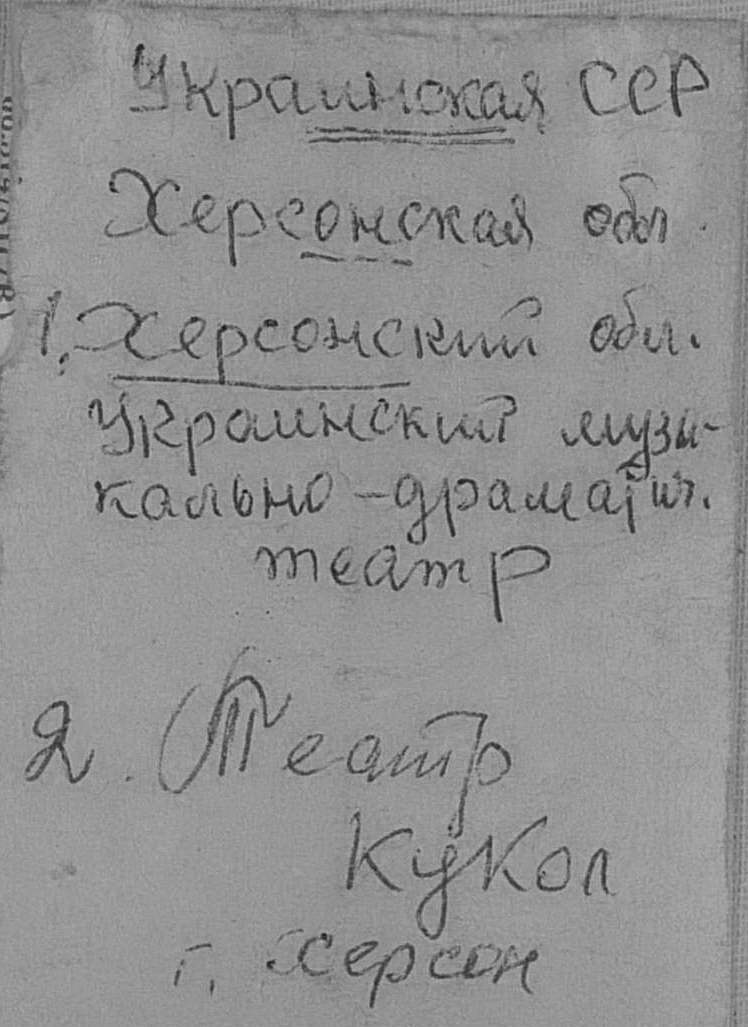 Украинская ССР
Херсонская обл.
1. Херсонский обл.
Украинский музы-
кально-драматич.
театр
2. Театр
Кукол
г. Херсон